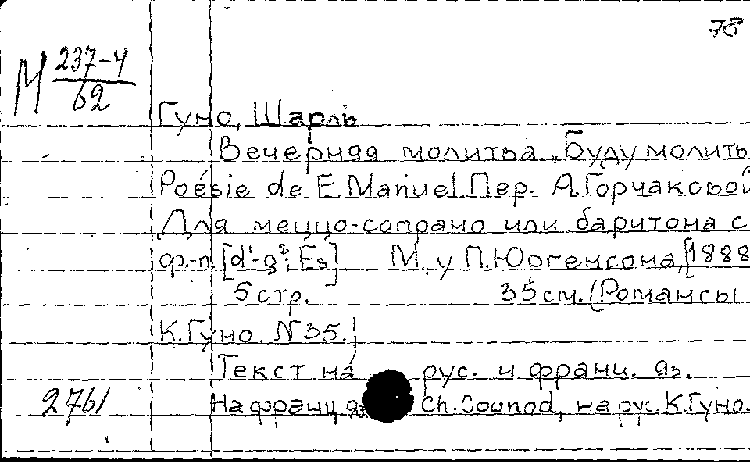 78
М 237-4
62
Гуно, Шарль
Вечерняя молитва. „Буду молить
Poésie de E.Manuel. Пер. А.Горчаковой
Для меццо-сопрано или баритона с
ф.-п. [d¹-g²; Es] М., у П.Юргенсона, [1888
5 стр. 35 см. (Романсы
К.Гуно. N 35.)
Текст на рус. и франц. яз.
На франц. яз. Ch.Gounod, на рус. К.Гуно.
2761